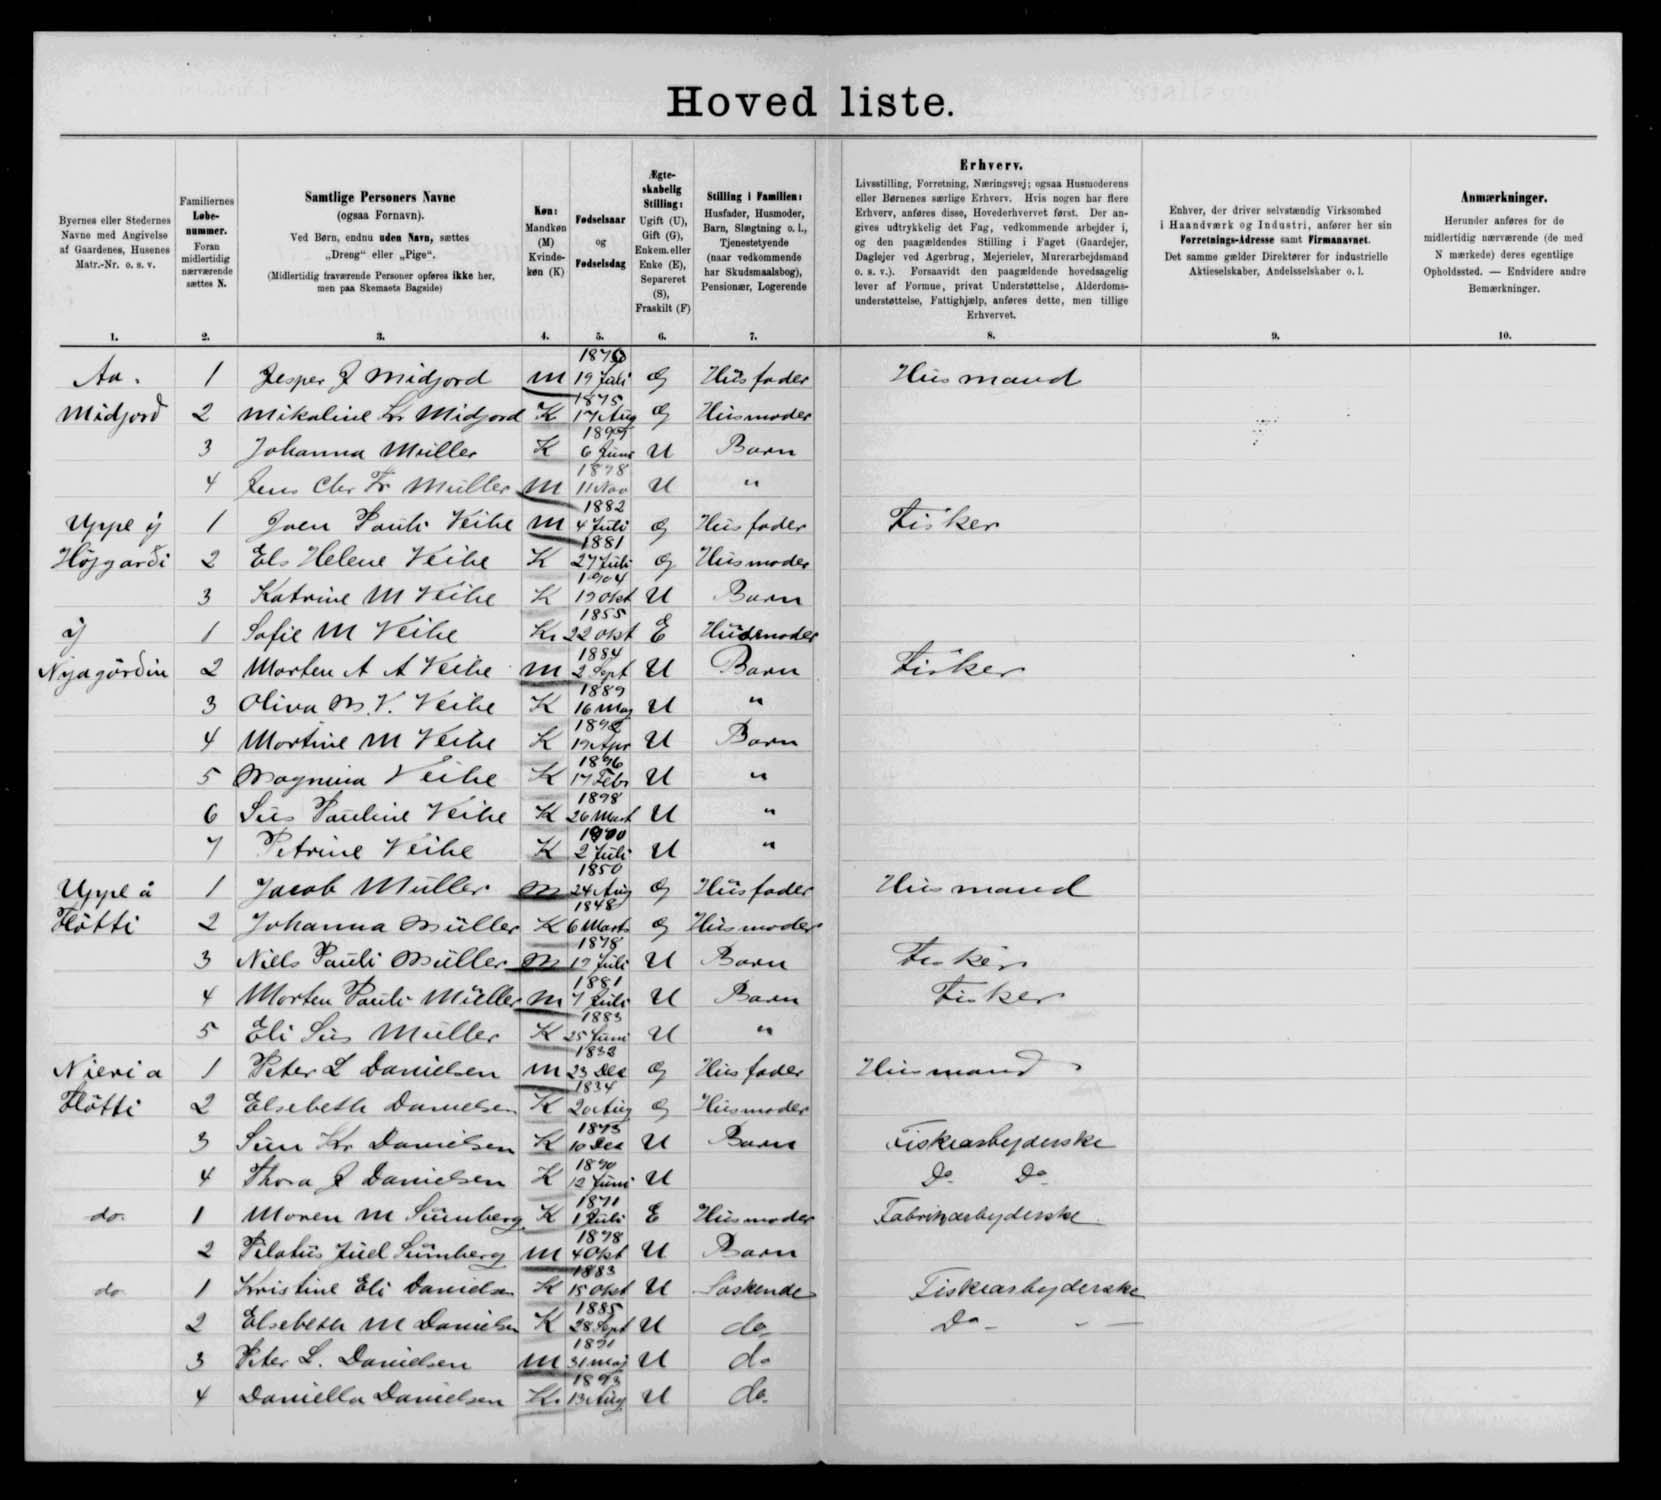 Hovedliste.
Byernes eller Stedernes Navne med Angivelse af Gaardenes, Husenes Matr.-Nr. o. s. v.
Familiernes Løbenummer. Foran midlertidig nærværende sættes N.
Samtlige Personers Navne (ogsaa Fornavn). Ved Børn, endnu uden Navn, sættes „Dreng" eller „Pige". (Midlertidig fraværende Personer opføres ikke her, men paa Skemaets Bagside)
Køn: Mandkøn (M) Kvindekøn (K)
Fødselsaar og Fødselsdag
Ægteskabelig Stilling: Ugift (U), Gift (G), Enkem. eller Enke (E), Separeret (S), Fraskilt (F)
Stilling i Familien: Husfader, Husmoder, Barn, Slægtning o. l., Tjenestetyende (naar vedkommende har Skudsmaalsbog), Pensionær, Logerende
Erhverv. Livsstilling, Forretning, Næringsvej; ogsaa Husmoderens eller Børnenes særlige Erhverv. Hvis nogen har flere Erhverv, anføres disse, Hovederhvervet først. Der angives udtrykkelig det Fag, vedkommende arbejder i, og den paagældendes Stilling i Faget (Gaardejer, Daglejer ved Agerbrug, Mejerielev, Murerarbejdsmand o. s. v.). Forsaavidt den paagældende hovedsagelig lever af Formue, privat Understøttelse, Alderdomsunderstøttelse, Fattighjælp, anføres dette, men tillige Erhvervet.
Enhver, der driver selvstændig Virksomhed i Haandværk og Industri, anfører her sin Forretnings-Adresse samt Firmanavnet. Det samme gælder Direktører for industrielle Aktieselskaber, Andelsselskaber o. l.
Anmærkninger. Herunder anføres for de midlertidig nærværende (de med N mærkede) deres egentlige Opholdssted. — Endvidere andre Bemærkninger.
1. 2. 3. 4. 5. 6. 7. 8. 9. 10.
Aa. 1 Jesper J Midjord M 19 Juli G Husfader Husmand
Midjord 2 Mikaline Midjord K 1875 17 Aug G Husmoder
3 Johanna Müller K 6 Juni U Barn
4 Jens Chr Fr Müller M 1898 11 Nov U "
Uppe y 1 Joen Pauli Veihe M 1882 4 Juli G Husfader Fisker
Højgarði 2 Els Helene Veihe K 1881 27 Juli G Husmoder
3 Katrine M Veihe K 1904 19 Okt U Barn
y 1 Sofie M Veihe K 1855 22 Okt E Husmoder
Nyagørðin 2 Morten A A Veihe M 1884 2 Sept U Barn Fisker
3 Oliva M. V. Veihe K 1889 16 Maj U "
4 Mortine M Veihe K 19 Apr U Barn
5 Magnina Veihe K 1896 17 Febr U "
6 Sus Pauline Veihe K 1898 26 Mart U "
7 Petrine Veihe K 1900 2 Juli U "
Uppe å 1 Jacob Müller M 1850 24 Aug G Husfader Husmand
Fløtti 2 Johanna Müller K 1848 6 Marts G Husmoder
3 Niels Pauli Müller M 1878 19 Juli U Barn Fisker
4 Morten Pauli Müller M 1881 7 Juli U Barn Fisker
5 Eli Sus Müller K 1883 25 Juni U "
Nieri a 1 Peter L Danielsen M 1832 23 Dec G Husfader Husmand
Fløtti 2 Elsebeth Danielsen K 1834 20 Aug G Husmoder
3 Sun Kr Danielsen K 1873 10 Dec U Barn Fiskearbejderske
4 Thora J Danielsen K 1890 12 Juni U Do Do
do. 1 Maren M Sumberg K 1871 1 Juli E Husmoder Fabrikarbejderske
2 Pilatus Juel Sumberg M 1898 4 Okt U Barn
do 1 Kristine Eli Danielsen K 1883 15 Okt U Søskende Fiskearbejderske
2 Elsebeth M Danielsen K 1885 28 Sept U do Do - - -
3 Peter L. Danielsen M 1891 31 Maj U do
4 Daniella Danielsen K 1893 13 Aug U do